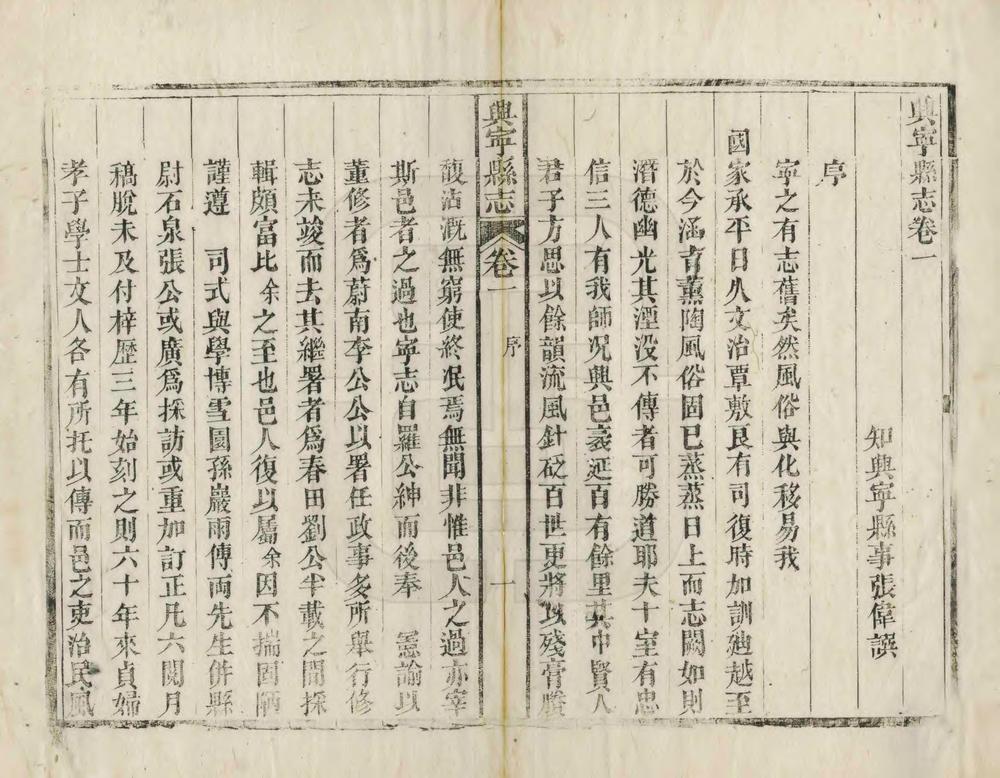 興寧縣志卷一
知興寧縣事張偉譔
序
寧之有志舊矣然風俗與化移易我
國家承平日久文治覃敷良有司復時加訓廸越至
於今涵育薰陶風俗固已蒸蒸日上而志闕如則
潛德幽光其湮没不傳者可勝道耶夫十室有忠
信三人有我師况興邑袤延百有餘里其中賢人
君子方思以餘韻流風針砭百世更將以殘膏賸
興寧縣志 卷一 序 一
馥沾溉無窮使終冺焉無聞非惟邑人之過亦宰
斯邑者之過也寧志自羅公紳而後奉 憲諭以
董修者爲蔚南李公公以署任政事多所舉行修
志未竣而去其繼署者爲春田劉公半載之間採
輯頗富比余之至也邑人復以屬余因不揣固陋
謹遵 司式與學博雪園孫巖雨傅両先生併縣
尉石泉張公或廣爲採訪或重加訂正凡六閱月
稿脫未及付梓歴三年始刻之則六十年來貞婦
孝子學士文人各有所托以傳而邑之吏治民風